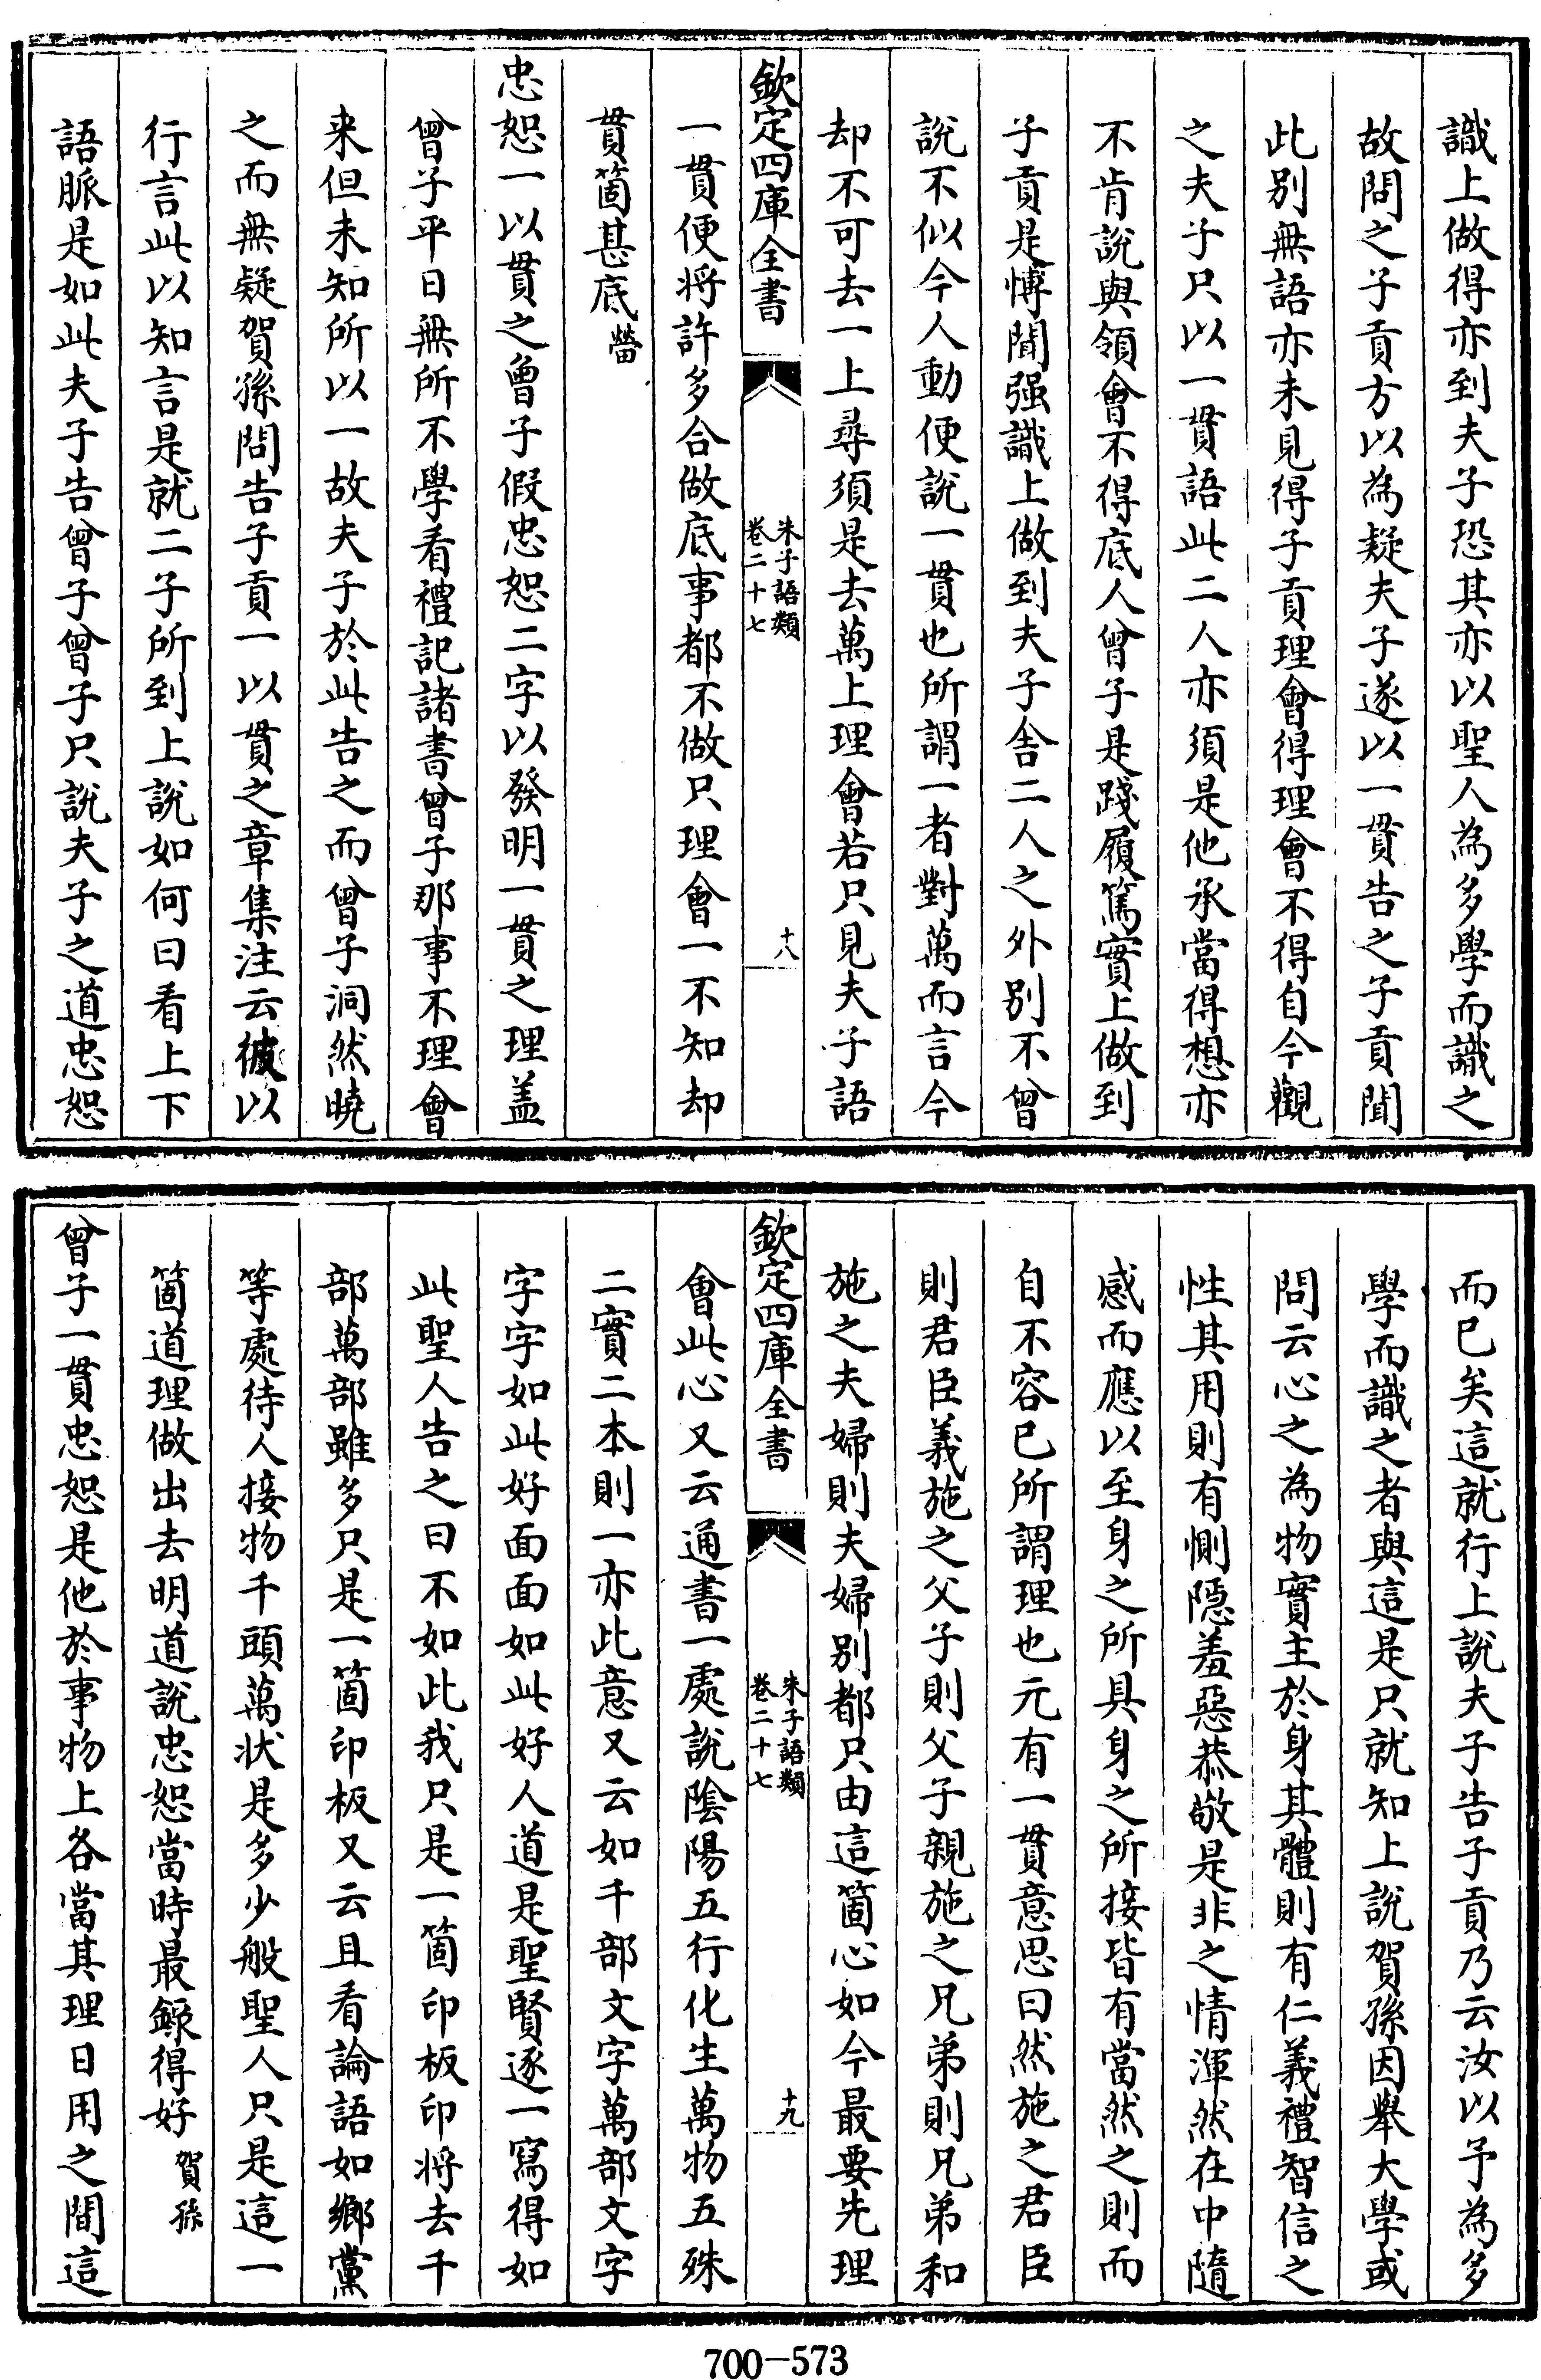 識上做得亦到夫子恐其亦以聖人為多學而識之
故問之子貢方以為疑夫子遂以一貫告之子貢聞
此別無語亦未見得子貢理會得理會不得自今觀
之夫子只以一貫語此二人亦須是他承當得想亦
不肯說與領會不得底人曾子是踐履篤實上做到
子貢是愽聞强識上做到夫子舎二人之外别不曾
說不似今人動便說一貫也所謂一者對萬而言今
却不可去一上尋須是去萬上理會若只見夫子語
欽定四庫全書
朱子語類
卷二十七
十八
一貫便将許多合做底事都不做只理會一不知却
貫箇甚底㽦
忠恕一以貫之曾子假忠恕二字以發明一貫之理盖
曾子平日無所不學看禮記諸書曾子那事不理會
来但未知所以一故夫子於此告之而曾子洞然曉
之而無疑賀孫問告子貢一以貫之章集注云彼以
行言此以知言是就二子所到上說如何曰看上下
語脈是如此夫子告曾子曾子只說夫子之道忠恕
而已矣這就行上說夫子告子貢乃云汝以予為多
學而識之者與這是只就知上說賀孫因舉大學或
問云心之為物實主於身其體則有仁義禮智信之
性其用則有惻隠羞惡恭敬是非之情渾然在中隨
感而應以至身之所具身之所接皆有當然之則而
自不容已所謂理也元有一貫意思曰然施之君臣
則君臣義施之父子則父子親施之兄弟則兄弟和
施之夫婦則夫婦别都只由這箇心如今最要先理
欽定四庫全書
朱子語類
卷二十七
十九
會此心又云通書一處說隂陽五行化生萬物五殊
二實二本則一亦此意又云如千部文字萬部文字
字字如此好面面如此好人道是聖賢逐一寫得如
此聖人告之曰不如此我只是一箇印板印将去千
部萬部雖多只是一箇印板又云且看論語如鄉黨
等處待人接物千頭萬状是多少般聖人只是這一
箇道理做出去明道說忠恕當時最錄得好賀孫
曾子一貫忠恕是他於事物上各當其理日用之間這
700-573